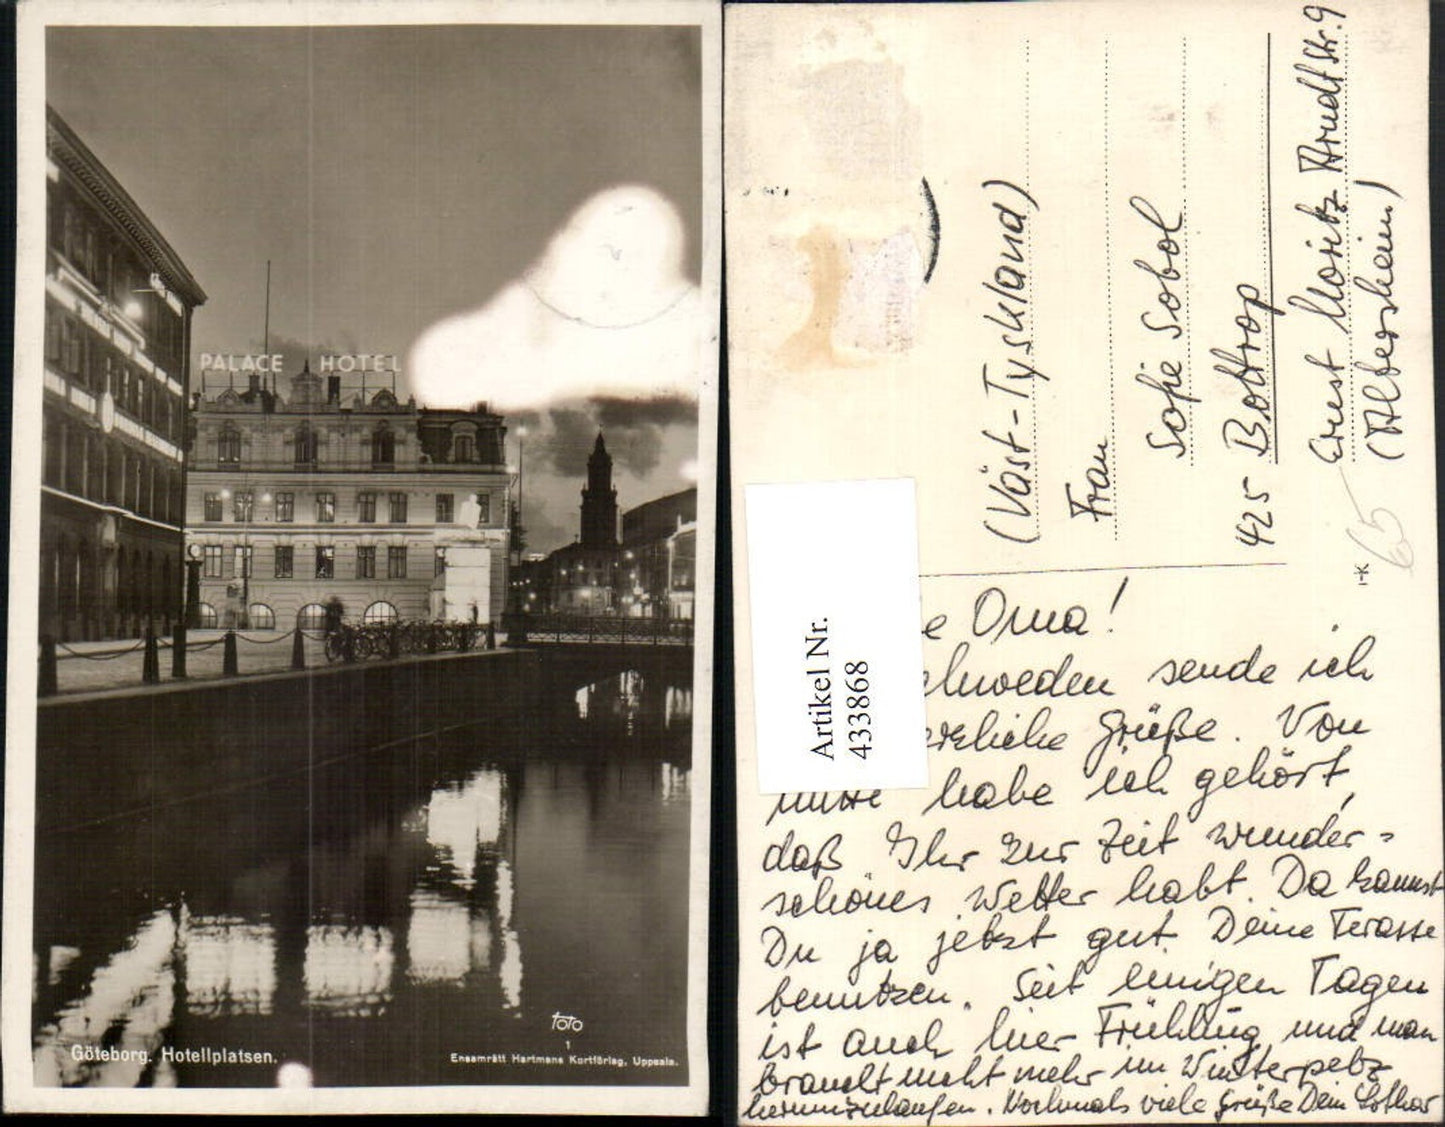 PALACE HOTEL
foto
1
Göteborg. Hotellplatsen.
Ensamrätt Hartmans Kortförlag, Uppsala.
(Väst-Tyskland)
Frau
Sofie Sobol
425 Bottrop
Ernst Moritz Arndtstr. 9
(Albersheim)
65
I-K
Artikel Nr.
433868
e Oma!
chweden sende ich
erzliche Grüße. Von
habe ich gehört,
daß Ihr zur Zeit wunder=
schönes Wetter habt. Da kannst
Du ja jetzt gut Deine Terasse
benutzen. Seit einigen Tagen
ist auch hier Frühling und man
braucht nicht mehr im Winterpelz
herumzulaufen. Nochmals viele Grüße Dein Lothar